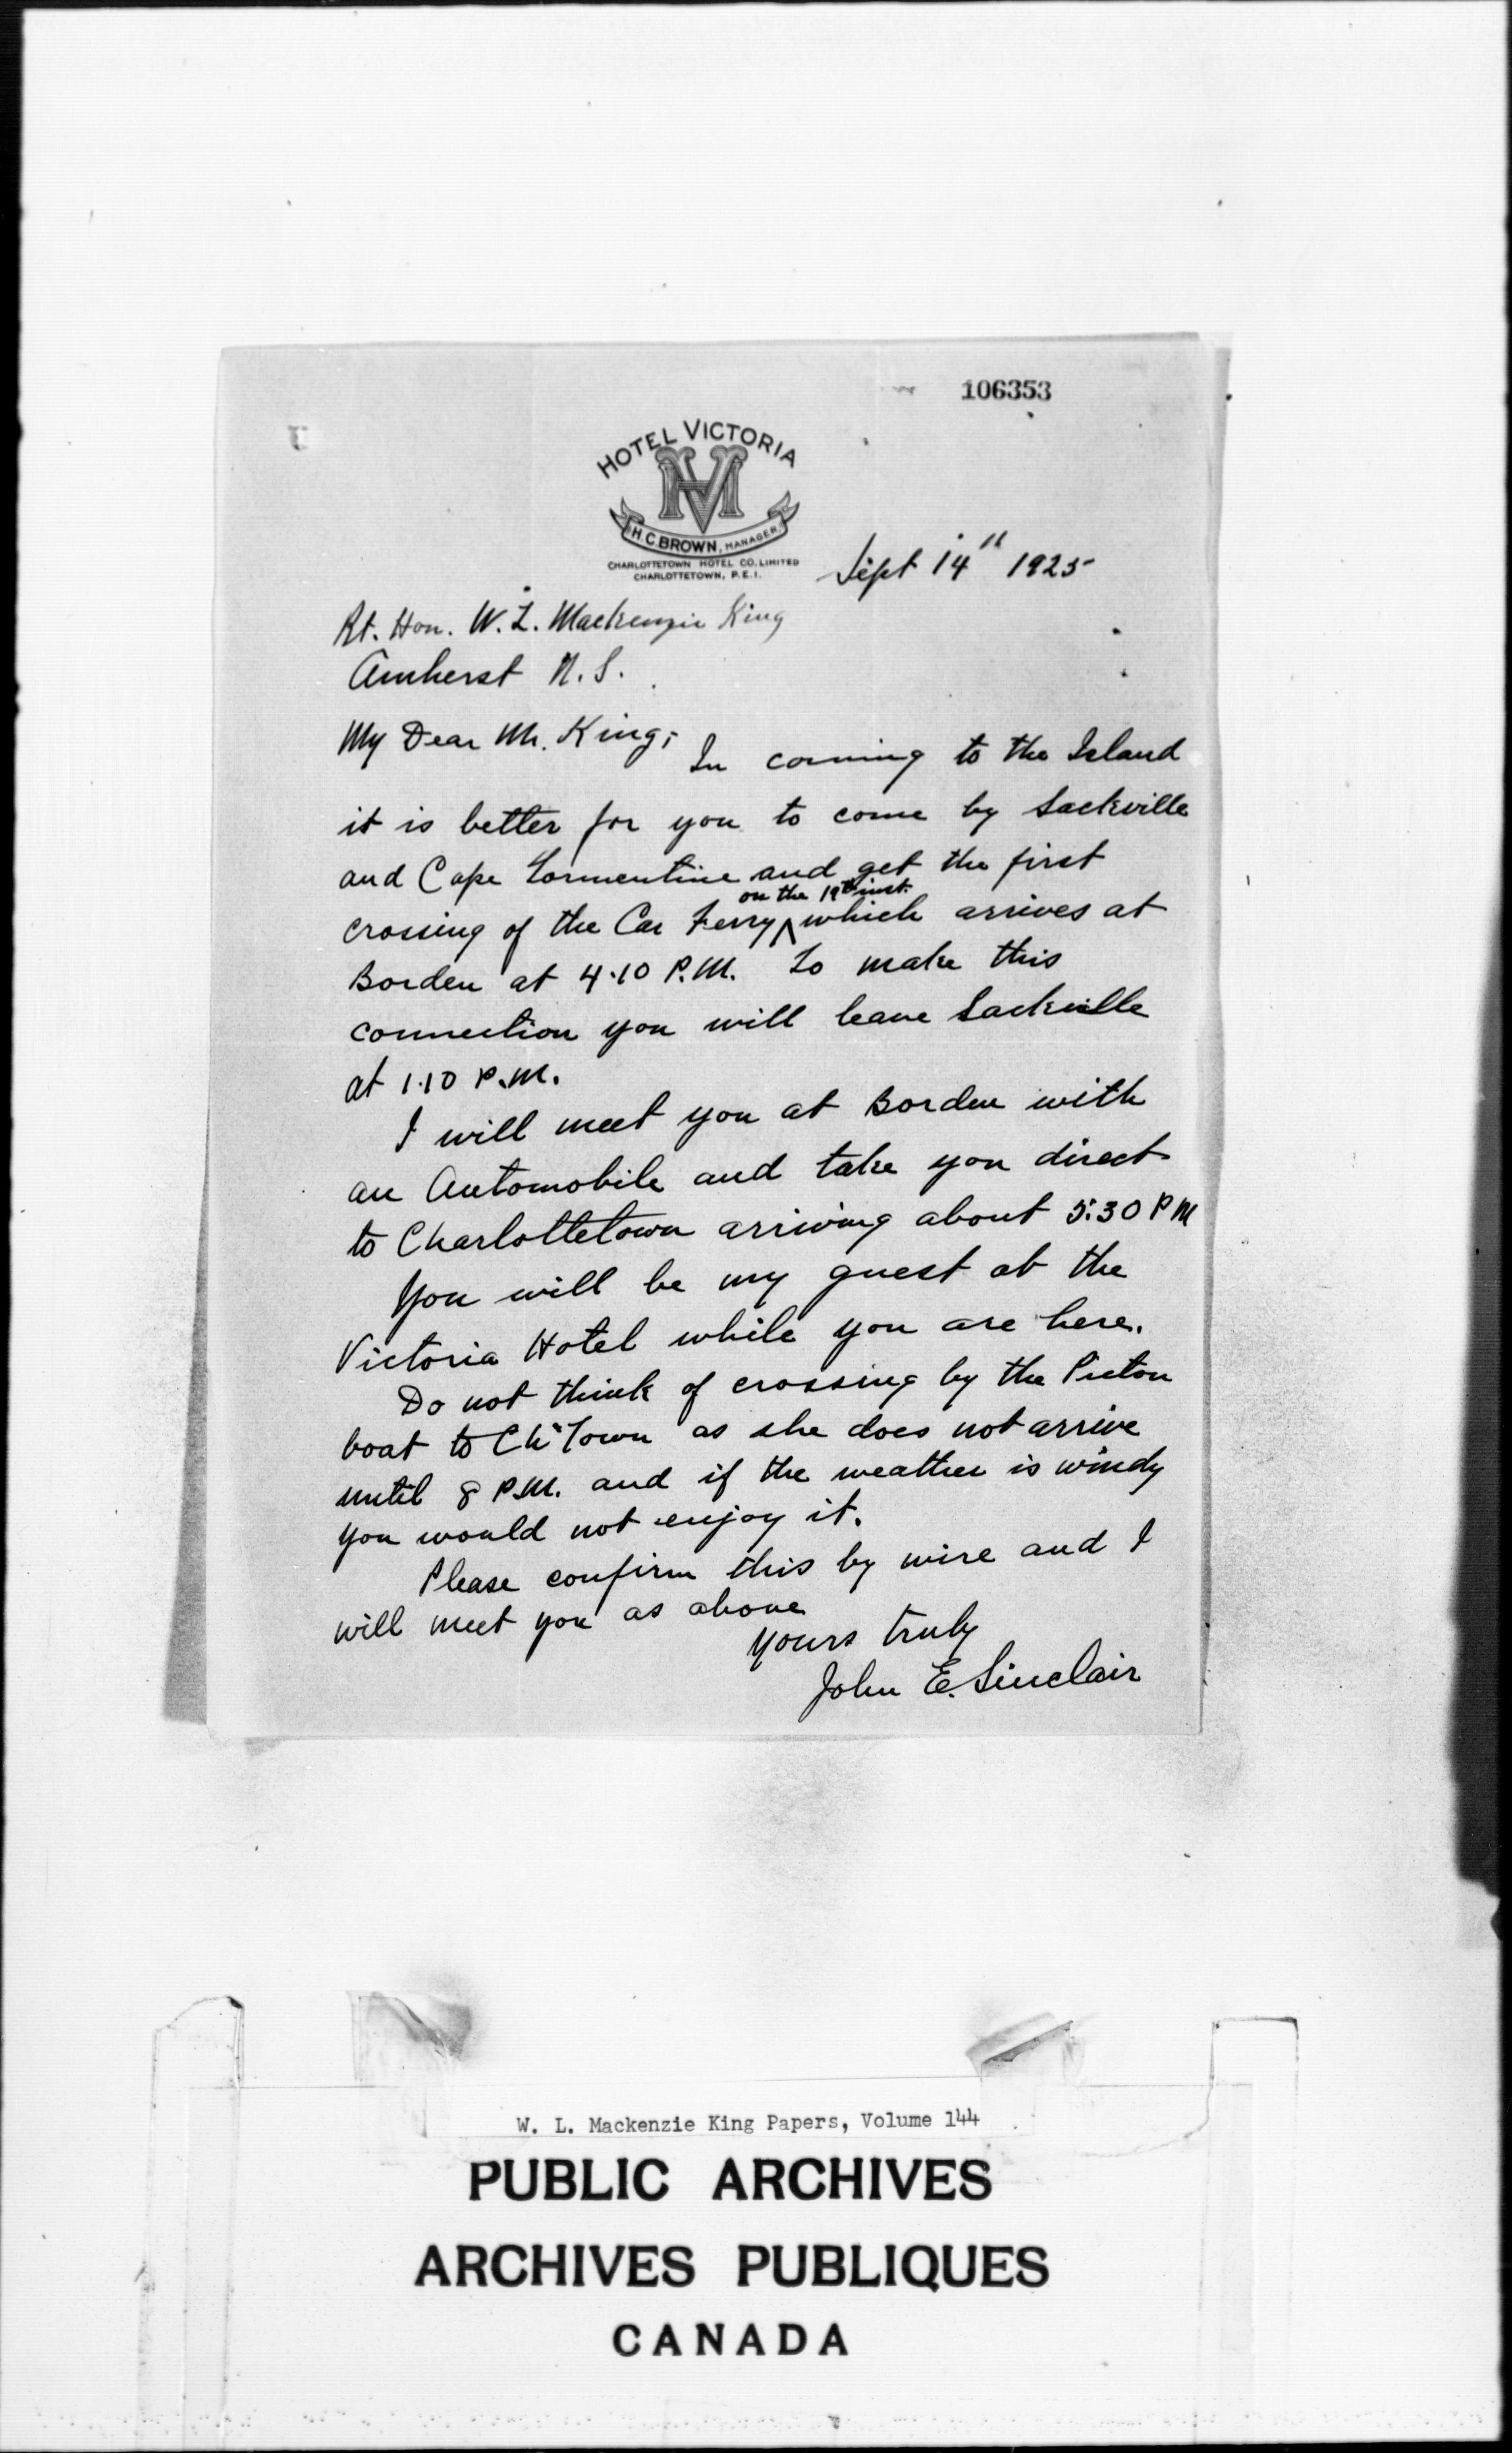 106353
HOTEL VICTORIA
HV
H.C. BROWN, MANAGER.
CHARLOTTETOWN HOTEL CO. LIMITED
CHARLOTTETOWN, P.E.I.
Sept 14th 1925
Rt. Hon. W. L. Mackenzie King
Amherst N.S.
My Dear Mr. King;
In coming to the Island
it is better for you to come by Sackville
and Cape Tormentine and get the first
on the 19th inst.
crossing of the Car Ferry ^ which arrives at
Borden at 4.10 P.M. To make this
connection you will leave Sackville
at 1.10 P.M.
I will meet you at Borden with
an Automobile and take you direct
to Charlottetown arriving about 5.30 PM
You will be my guest at the
Victoria Hotel while you are here.
Do not think of crossing by the Pictou
boat to Ch'Town as she does not arrive
until 8 P.M. and if the weather is windy
you would not enjoy it.
Please confirm this by wire and I
will meet you as above
Yours truly
John E. Sinclair
W. L. Mackenzie King Papers, Volume 144
PUBLIC ARCHIVES
ARCHIVES PUBLIQUES
CANADA